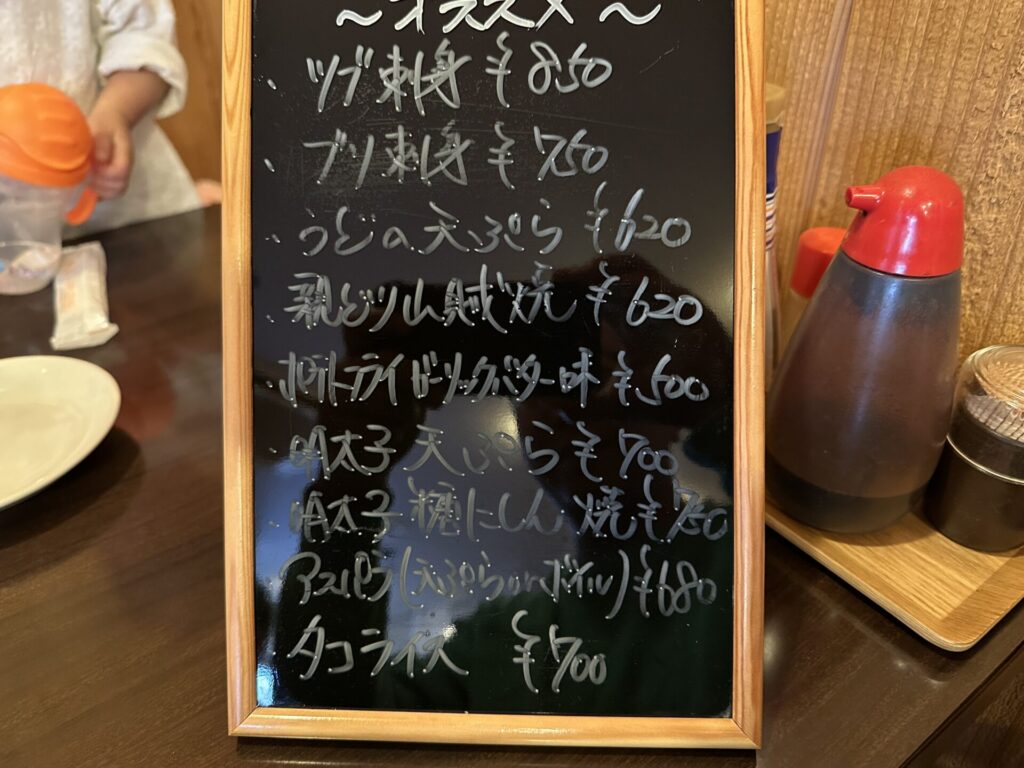 ～オススメ～
・ツブ刺身 ¥850
・ブリ刺身 ¥750
・うどの天ぷら ¥620
・親どり山賊焼 ¥620
・ポテトフライガーリックバター味 ¥500
・明太子天ぷら ¥700
・明太子糠にしん焼 ¥750
・アスパラ(天ぷらorボイル) ¥680
・タコライス ¥700